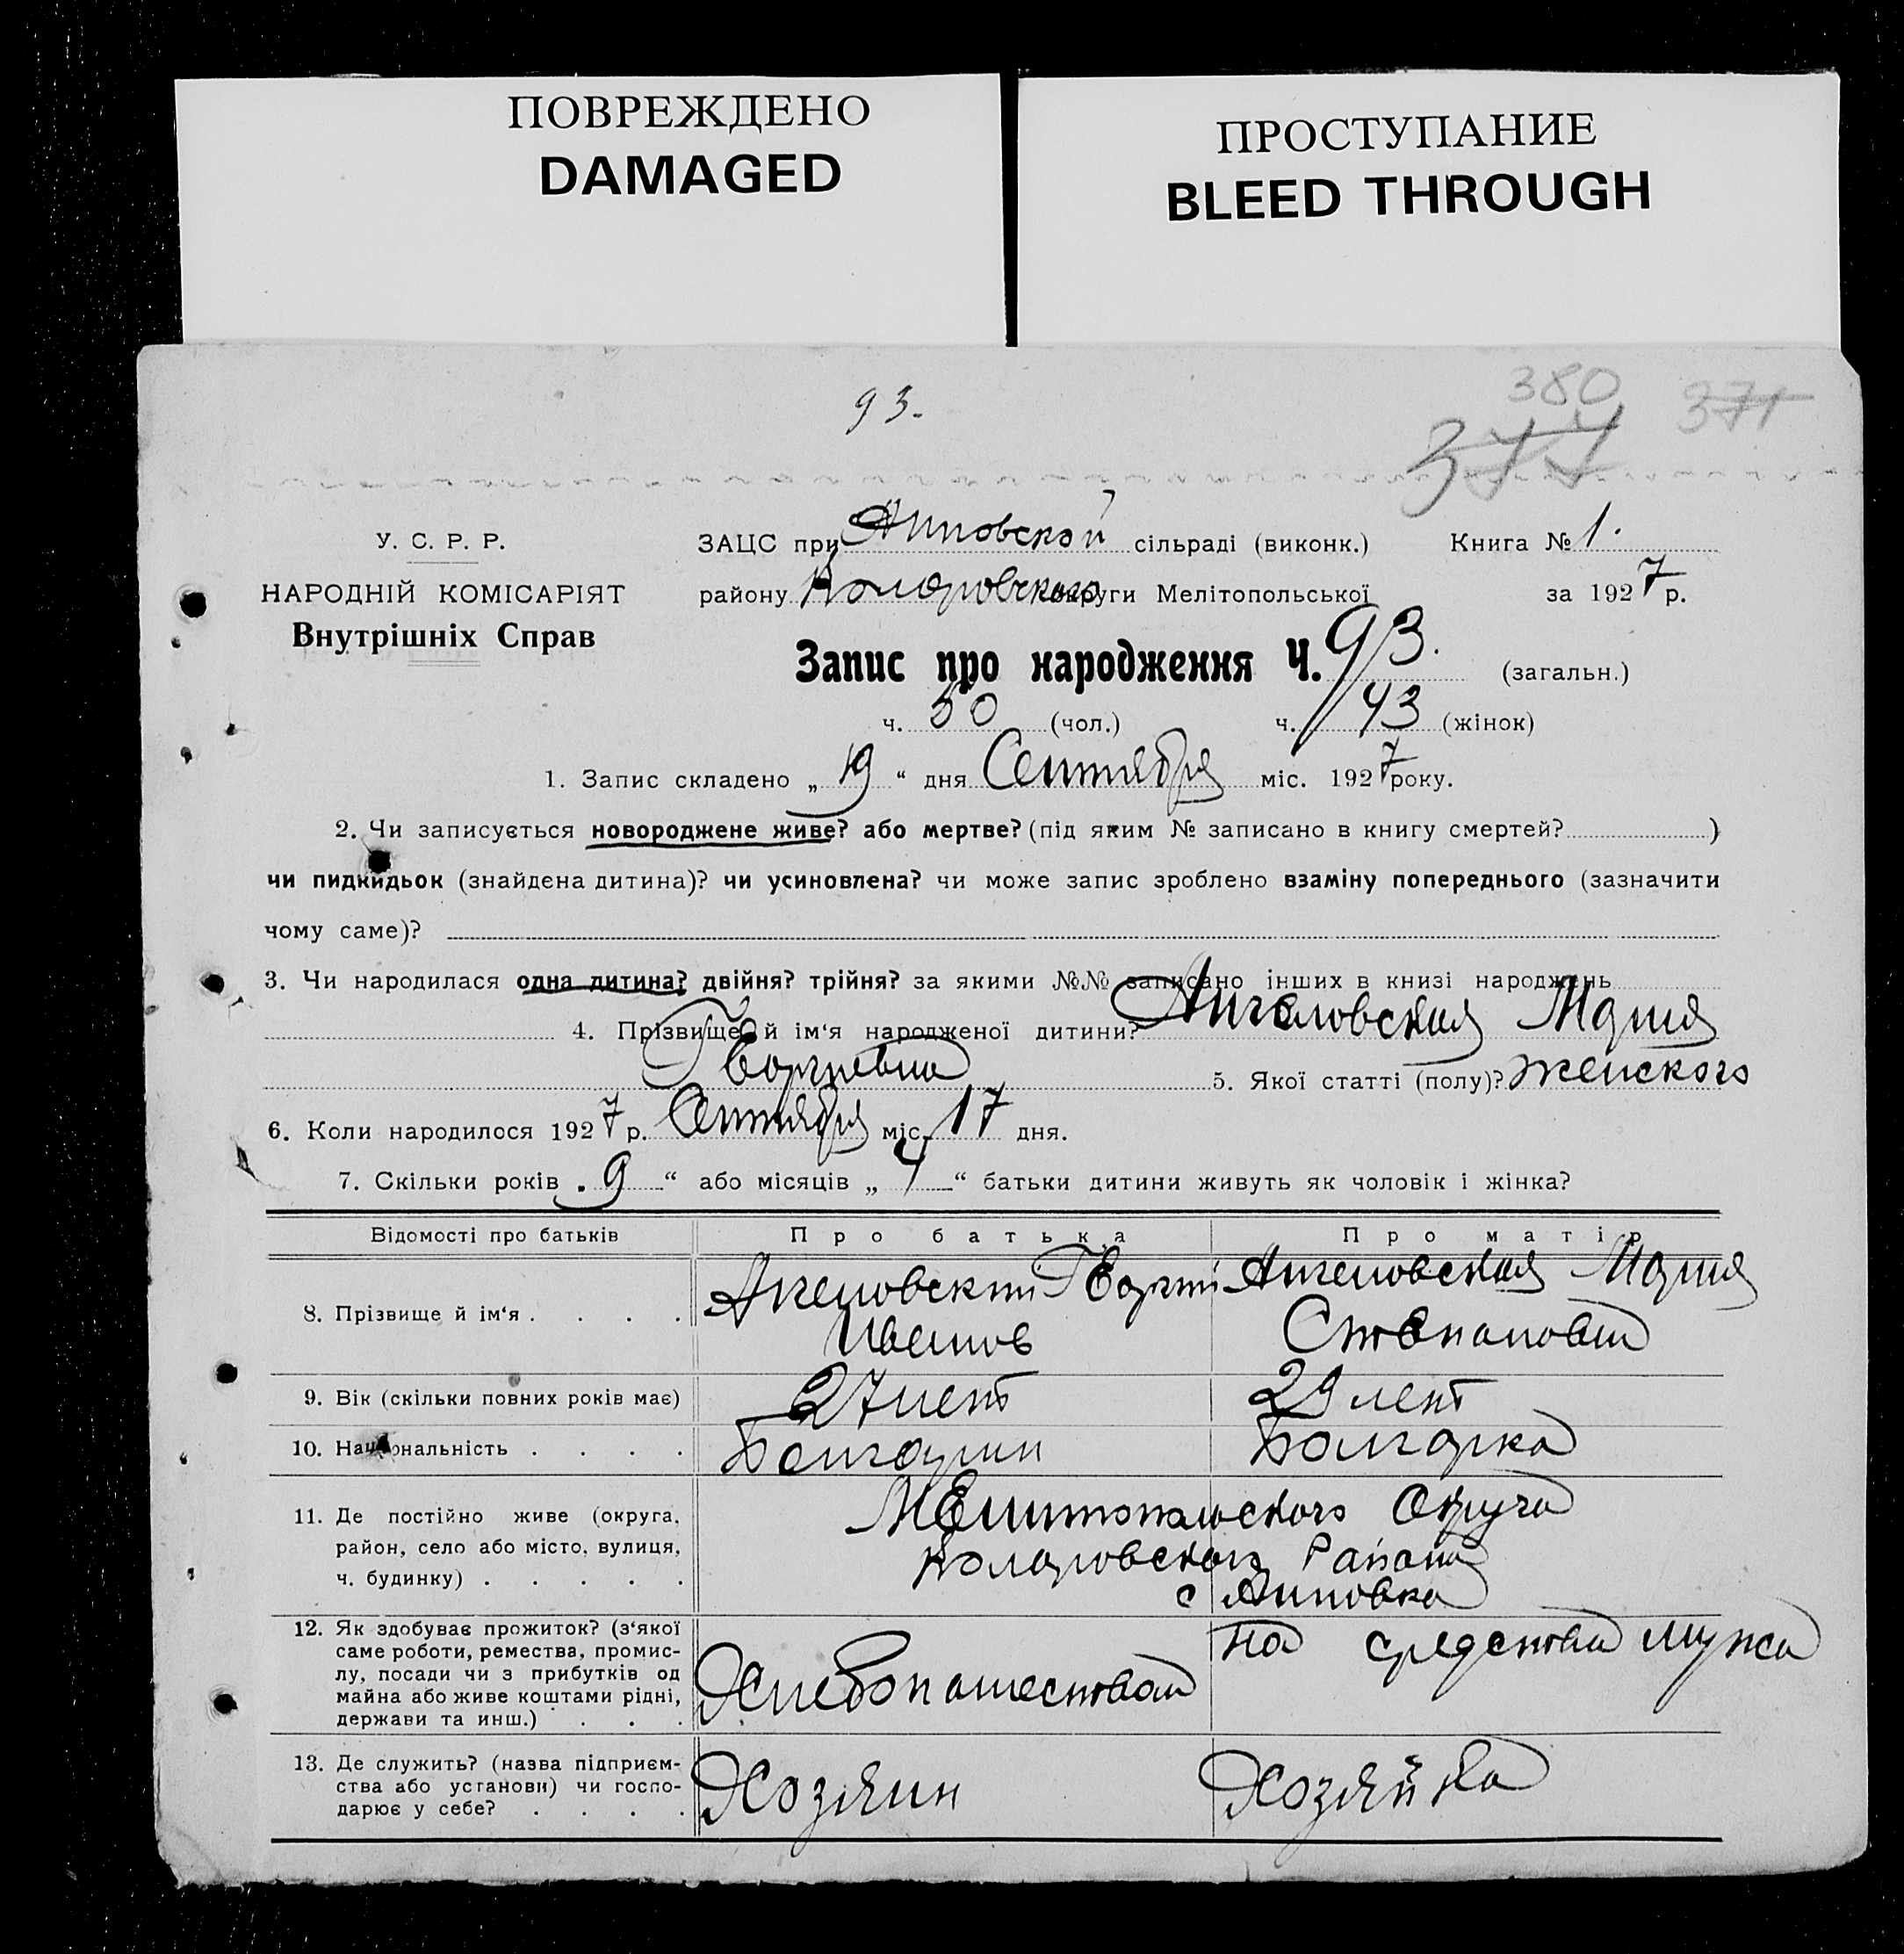 ПОВРЕЖДЕНО
DAMAGED
ПРОСТУПАНИЕ
BLEED THROUGH
93.
380 371
377
У. С. Р. Р.
НАРОДНІЙ КОМІСАРІЯТ
Внутрішніх Справ
ЗАЦС при Анновской сільраді (виконк.) Книга № 1.
району Коларовского округи Мелітопольської за 1927 р.
Запис про народження Ч. 93. (загальн.)
ч. 50 (чол.) ч. 43 (жінок)
1. Запис складено „ 19 “ дня Сентября міс. 1927 року.
2. Чи записується новороджене живе? або мертве? (під яким № записано в книгу смертей? )
чи пидкидьок (знайдена дитина)? чи усиновлена? чи може запис зроблено взаміну попереднього (зазначити
чому саме)?
3. Чи народилася одна дитина? двійня? трійня? за якими №№ записано інших в книзі народжень
4. Прізвище й ім‘я народженої дитини? Ангеловская Мария
Георгиевна 5. Якої статті (полу)? женского
6. Коли народилося 1927 р. Сентября міс. 17 дня.
7. Скільки років „ 9 “ або місяців „ “ батьки дитини живуть як чоловік і жінка?
Відомості про батьків Про батька Про матір
8. Прізвище й ім‘я . . . . Ангеловский Георгий Ангеловская Мария
Иванов Степановна
9. Вік (скільки повних років має) 27 лет 29 лет
10. Національність . . . . Болгарин Болгарка
11. Де постійно живе (округа, район, село або місто, вулиця, ч. будинку) . . . . .
Мелитопольского Округа
Коларовского Района
с Анновка
12. Як здобуває прожиток? (з‘якої саме роботи, ремества, промислу, посади чи з прибутків од майна або живе коштами рідні, держави та инш.) . . .
Хлебопашеством на средства мужа
13. Де служить? (назва підприємства або установи) чи господарює у себе? . . . .
Хозяин Хозяйка